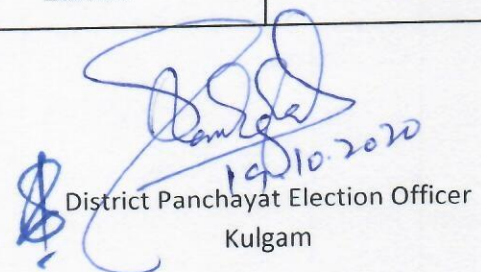 19.10.2020
District Panchayat Election Officer
Kulgam